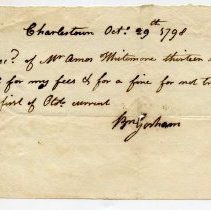 Charlestown Oct.º 29th 1798
ec.d of Mr Amos Whitemore thirteen
for my fees & for a fine for not
first of Oct.º current
Gorham